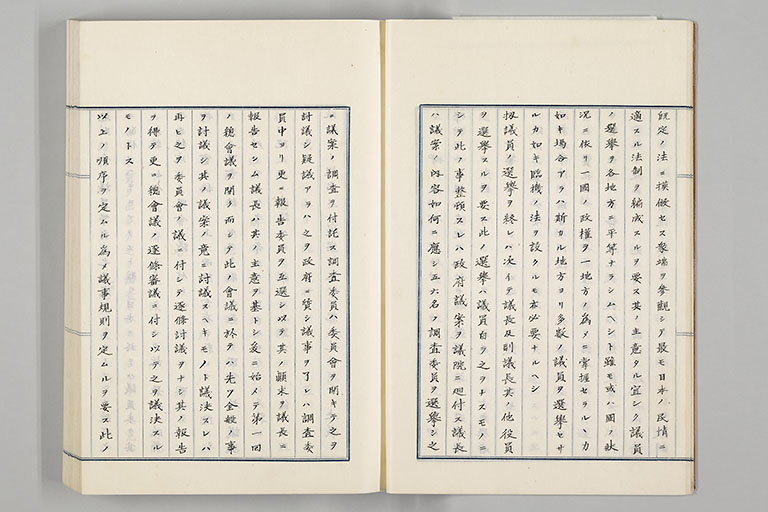 既定ノ法ニ摸倣セス衆端ヲ參觀シテ最モ日本ノ民情ニ
適スル法制ヲ編成スルヲ要ス其ノ主意タル宜シク議員
ノ選擧ヲ各地方ニ平等ナラシムヘシト雖モ或ハ國ノ狀
況ニ依リ一國ノ政權ヲ一地方ノ為メニ掌握セラルヽカ
如キ場合アラハ斯カル地方ヨリ多數ノ議員ヲ選擧セサ
ルカ如キ臨機ノ法ヲ設クルモ亦必要ナルヘシ
扨議員ノ選擧ヲ終レハ次イテ議長及副議長其ノ他役員
ヲ選擧スルヲ要ス此ノ選擧ハ議員自ラ之ヲナスモノニ
シテ此ノ事整頓スレハ政府ノ議案ヲ議院ニ廻付ス議長
ハ議案ノ內容如何ニ應シ五六名ノ調査委員ヲ選擧シ之
ニ議案ノ調査ヲ付託ス調査委員ハ委員會ヲ開キテ之ヲ
討議シ疑議アラハ之ヲ政府ニ質シ議事ヲ了レハ調査委
員中ヨリ更ニ報告委員ヲ互選シ以テ其ノ顚末ヲ議長ニ
報告セシム議長ハ其ノ主意ヲ基トシ爰ニ始メテ第一回
ノ總會議ヲ開ク而シテ此ノ會議ニ於テハ先ツ全般ノ事
ヲ討議シ其ノ議案ノ竟ニ討議スヘキモノト議決スレハ
再ヒ之ヲ委員會ノ議ニ付シテ逐條討議ヲナシ其ノ報告
ヲ得テ更ニ總會議ノ逐條審議ニ付シ以テ之ヲ議決スル
モノトス
以上ノ順序ヲ定ムル為メ議事規則ヲ定ムルヲ要ス此ノ